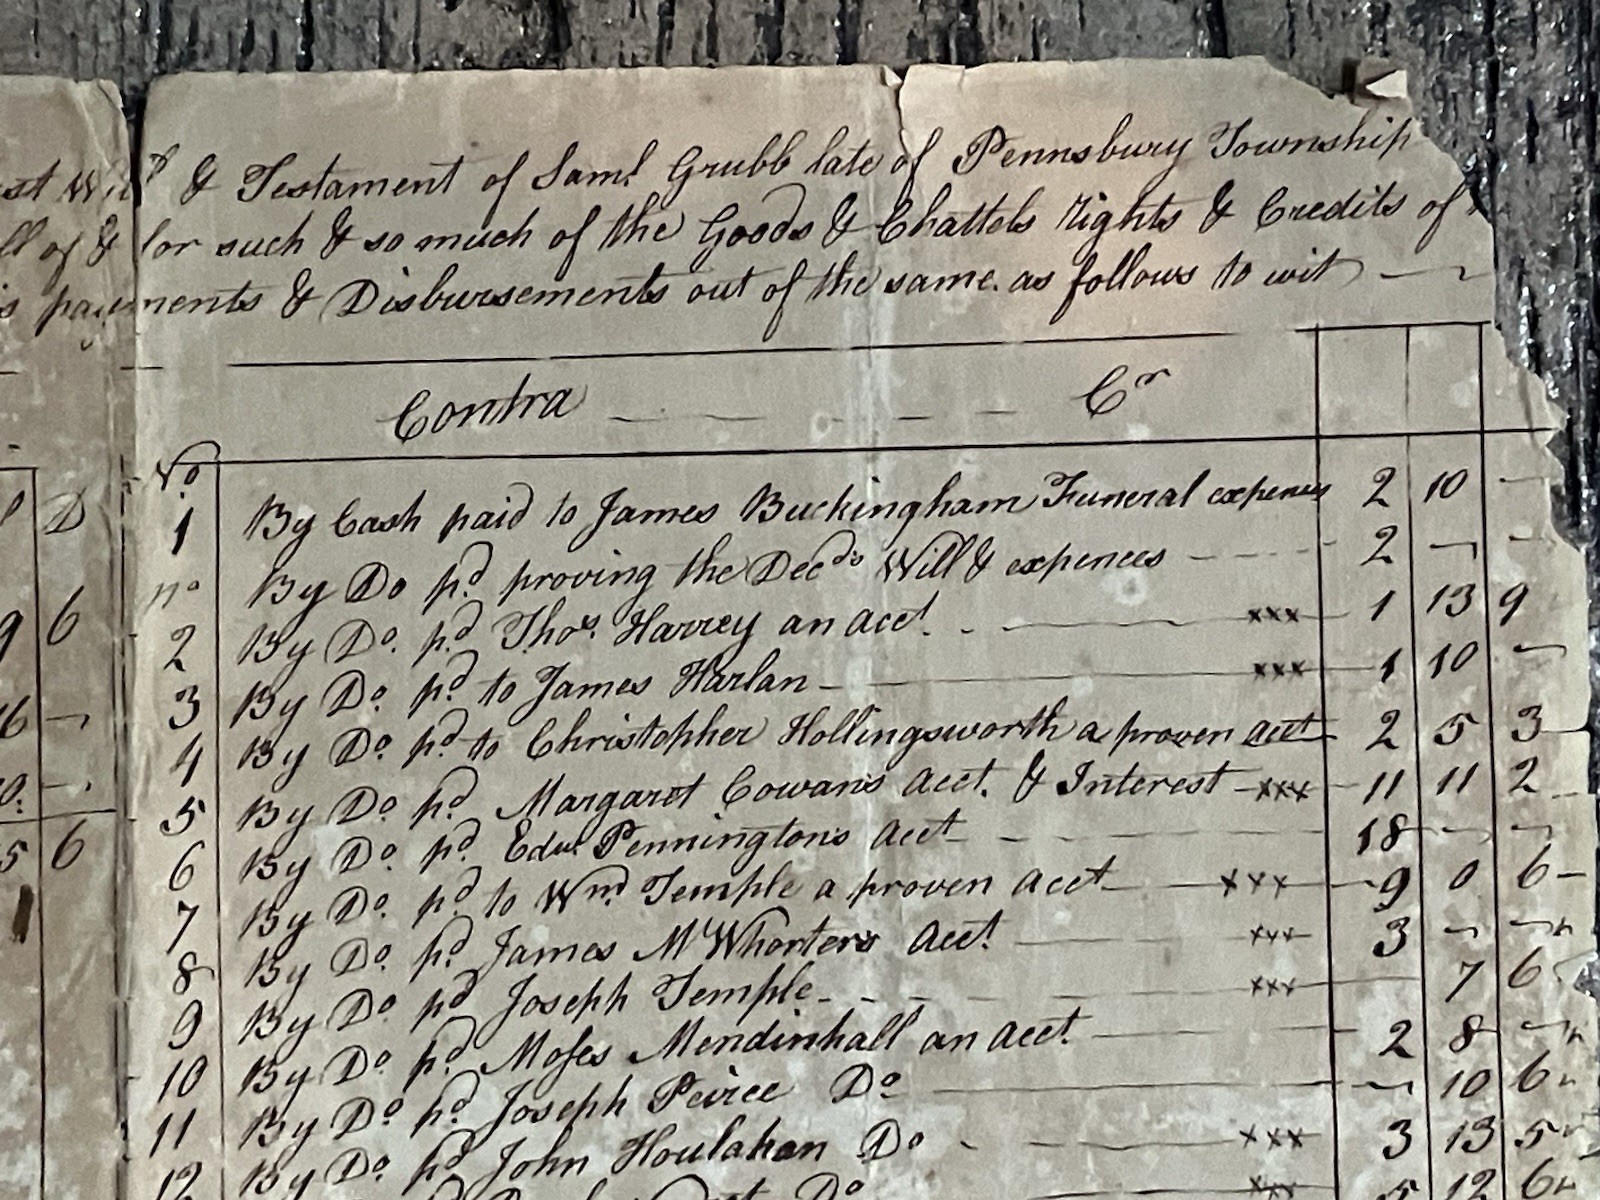 st Will & Testament of Saml Grubb late of Pennsbury Township
ll of & for such & so much of the Goods & Chattels Rights & Credits of
s payments & Disbursements out of the same as follows to wit
Contra Cr
No
D
1 By Cash paid to James Buckingham Funeral expences 2 10 -
no By Do pd proving the Decds Will & expences 2 - -
9 6
2 By Do. pd Thos. Harvey an acct. xxx 1 13 9
3 By Do. pd to James Harlan xxx 1 10 -
16 -
4 By Do. pd to Christopher Hollingsworth a proven acct 2 5 3
0. -
5 By Do pd Margaret Cowans acct. & Interest xxx 11 11 2
5 6
6 By Do. pd. Edw. Penningtons acct 18 - -
7 By Do. pd to Wm Temple a proven acct xxx 9 0 6
8 By Do. pd. James McWhorters acct. xxx 3 - -
9 By Do. pd Joseph Temple xxx 7 6
10 By Do. pd. Moses Mendinhall an acct. 2 8 -
11 By Do pd Joseph Peirce Do - 10 6
12 By Do. pd John Houlahan Do xxx 3 13 5
Do xxx 5 12 6